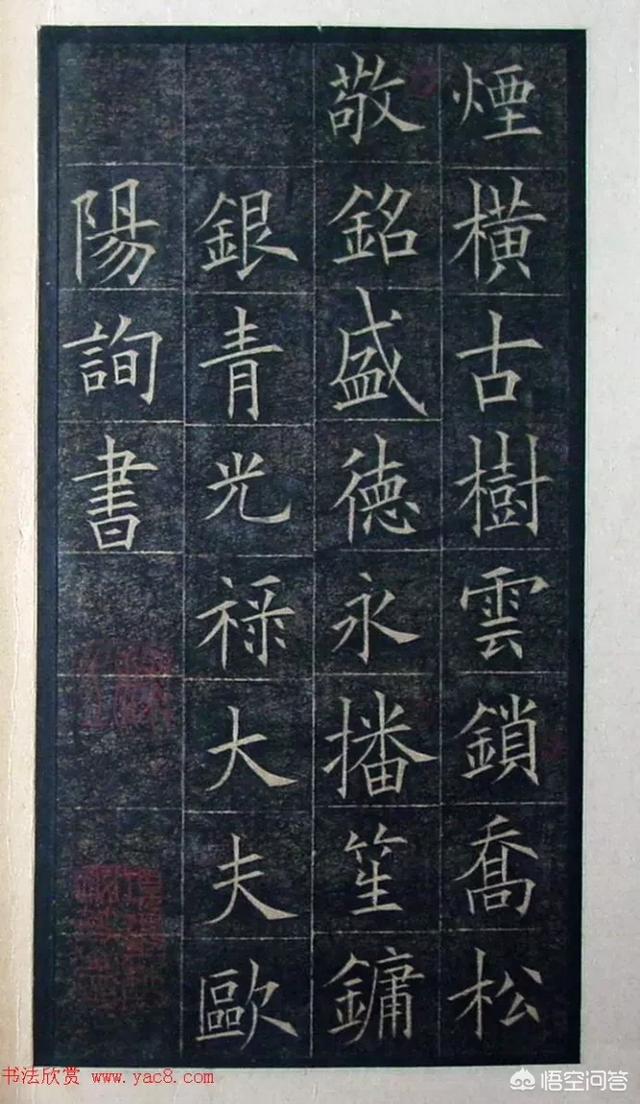 煙橫古樹雲鎖喬松
敬銘盛德永播笙鏞
銀青光祿大夫歐
陽詢書
书法欣赏 www.yac8.com
悟空问答